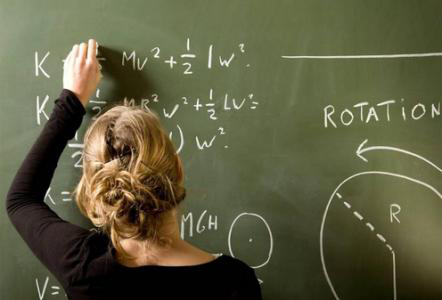 K ½ Mv² + ½ Iw².
K ½ MR² w² + ½ Lw² =
½ ) w².
K =
MGH
V =
ROTATION
R